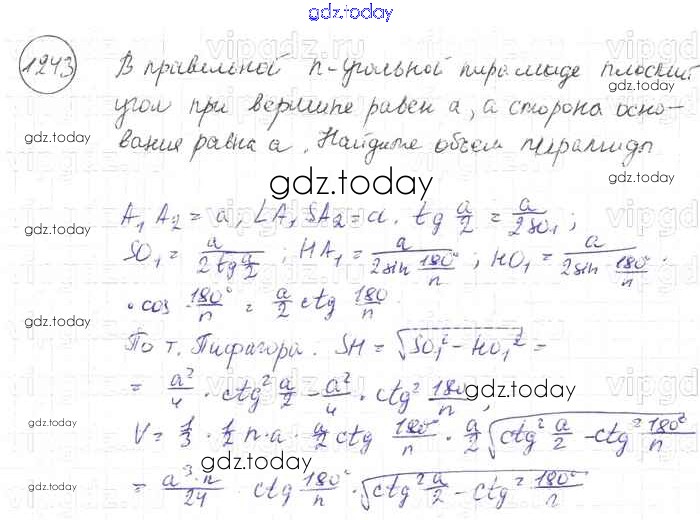 gdz.today
1243 В правильной n-угольной пирамиде плоский
угол при вершине равен α, а сторона осно-
вания равна a. Найдите объем пирамиды
gdz.today
gdz.today
A₁A₂ = a, ∠A₁SA₂ = α. tg α/2 = a/2SO₁;
SO₁ = a/(2tg α/2); HA₁ = a/(2sin 180°/n); HO₁ = a/(2sin 180°/n) ·
gdz.today
· cos 180°/n = a/2 ctg 180/n.
gdz.today
По т. Пифагора. SH = √(SO₁² - HO₁²) =
= a²/4 · ctg² α/2 - a²/4 · ctg² 180/n;
gdz.today
gdz.today
V = 1/3 · 1/2 n · a · a/2 ctg 180°/n · a/2 √(ctg² α/2 - ctg² 180°/n)
gdz.today
gdz.today
= a³·n/24 ctg 180°/n · √(ctg² α/2 - ctg² 180°/n)